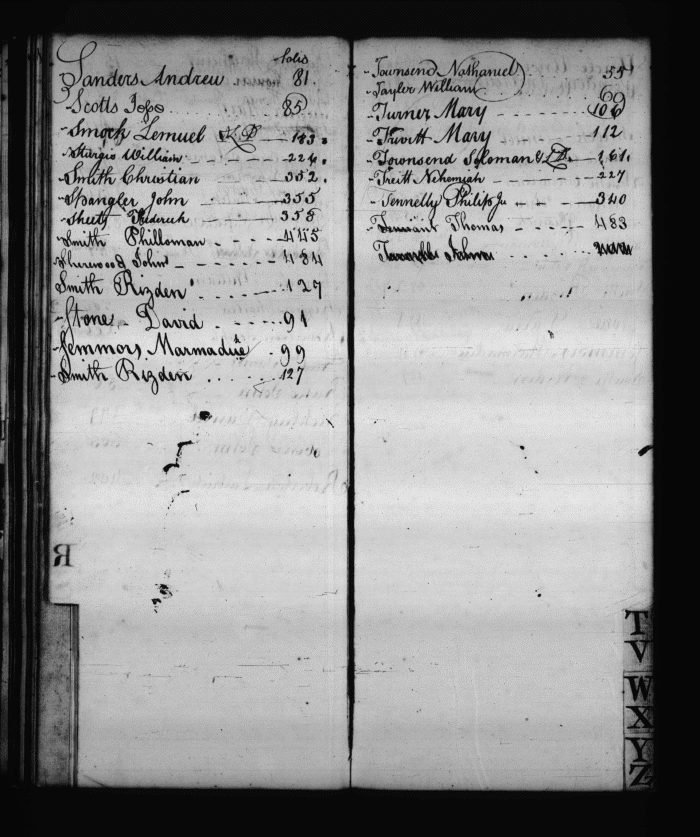 folio
Sanders Andrew 81
Scotts 85
Smock Lemuel 183.
Sturgis William 224.
Smith Christian 352.
Spangler John 355
Sheetz Frederich 358
Smith Philloman 445
Sherwood John 484
Smith Rizden 127
Stone David 91
Semmors Marmaduе 99
Smith Rizden 127
R
Townsend Nathaniel 55
Tayler William 69
Turner Mary 106
Truitt Mary 112
Townsend Soloman 161.
Treitt Nehemiah 227
Tennelly Philip Ju 340
Tennant Thomas 483
T
V
W
X
Y
Z